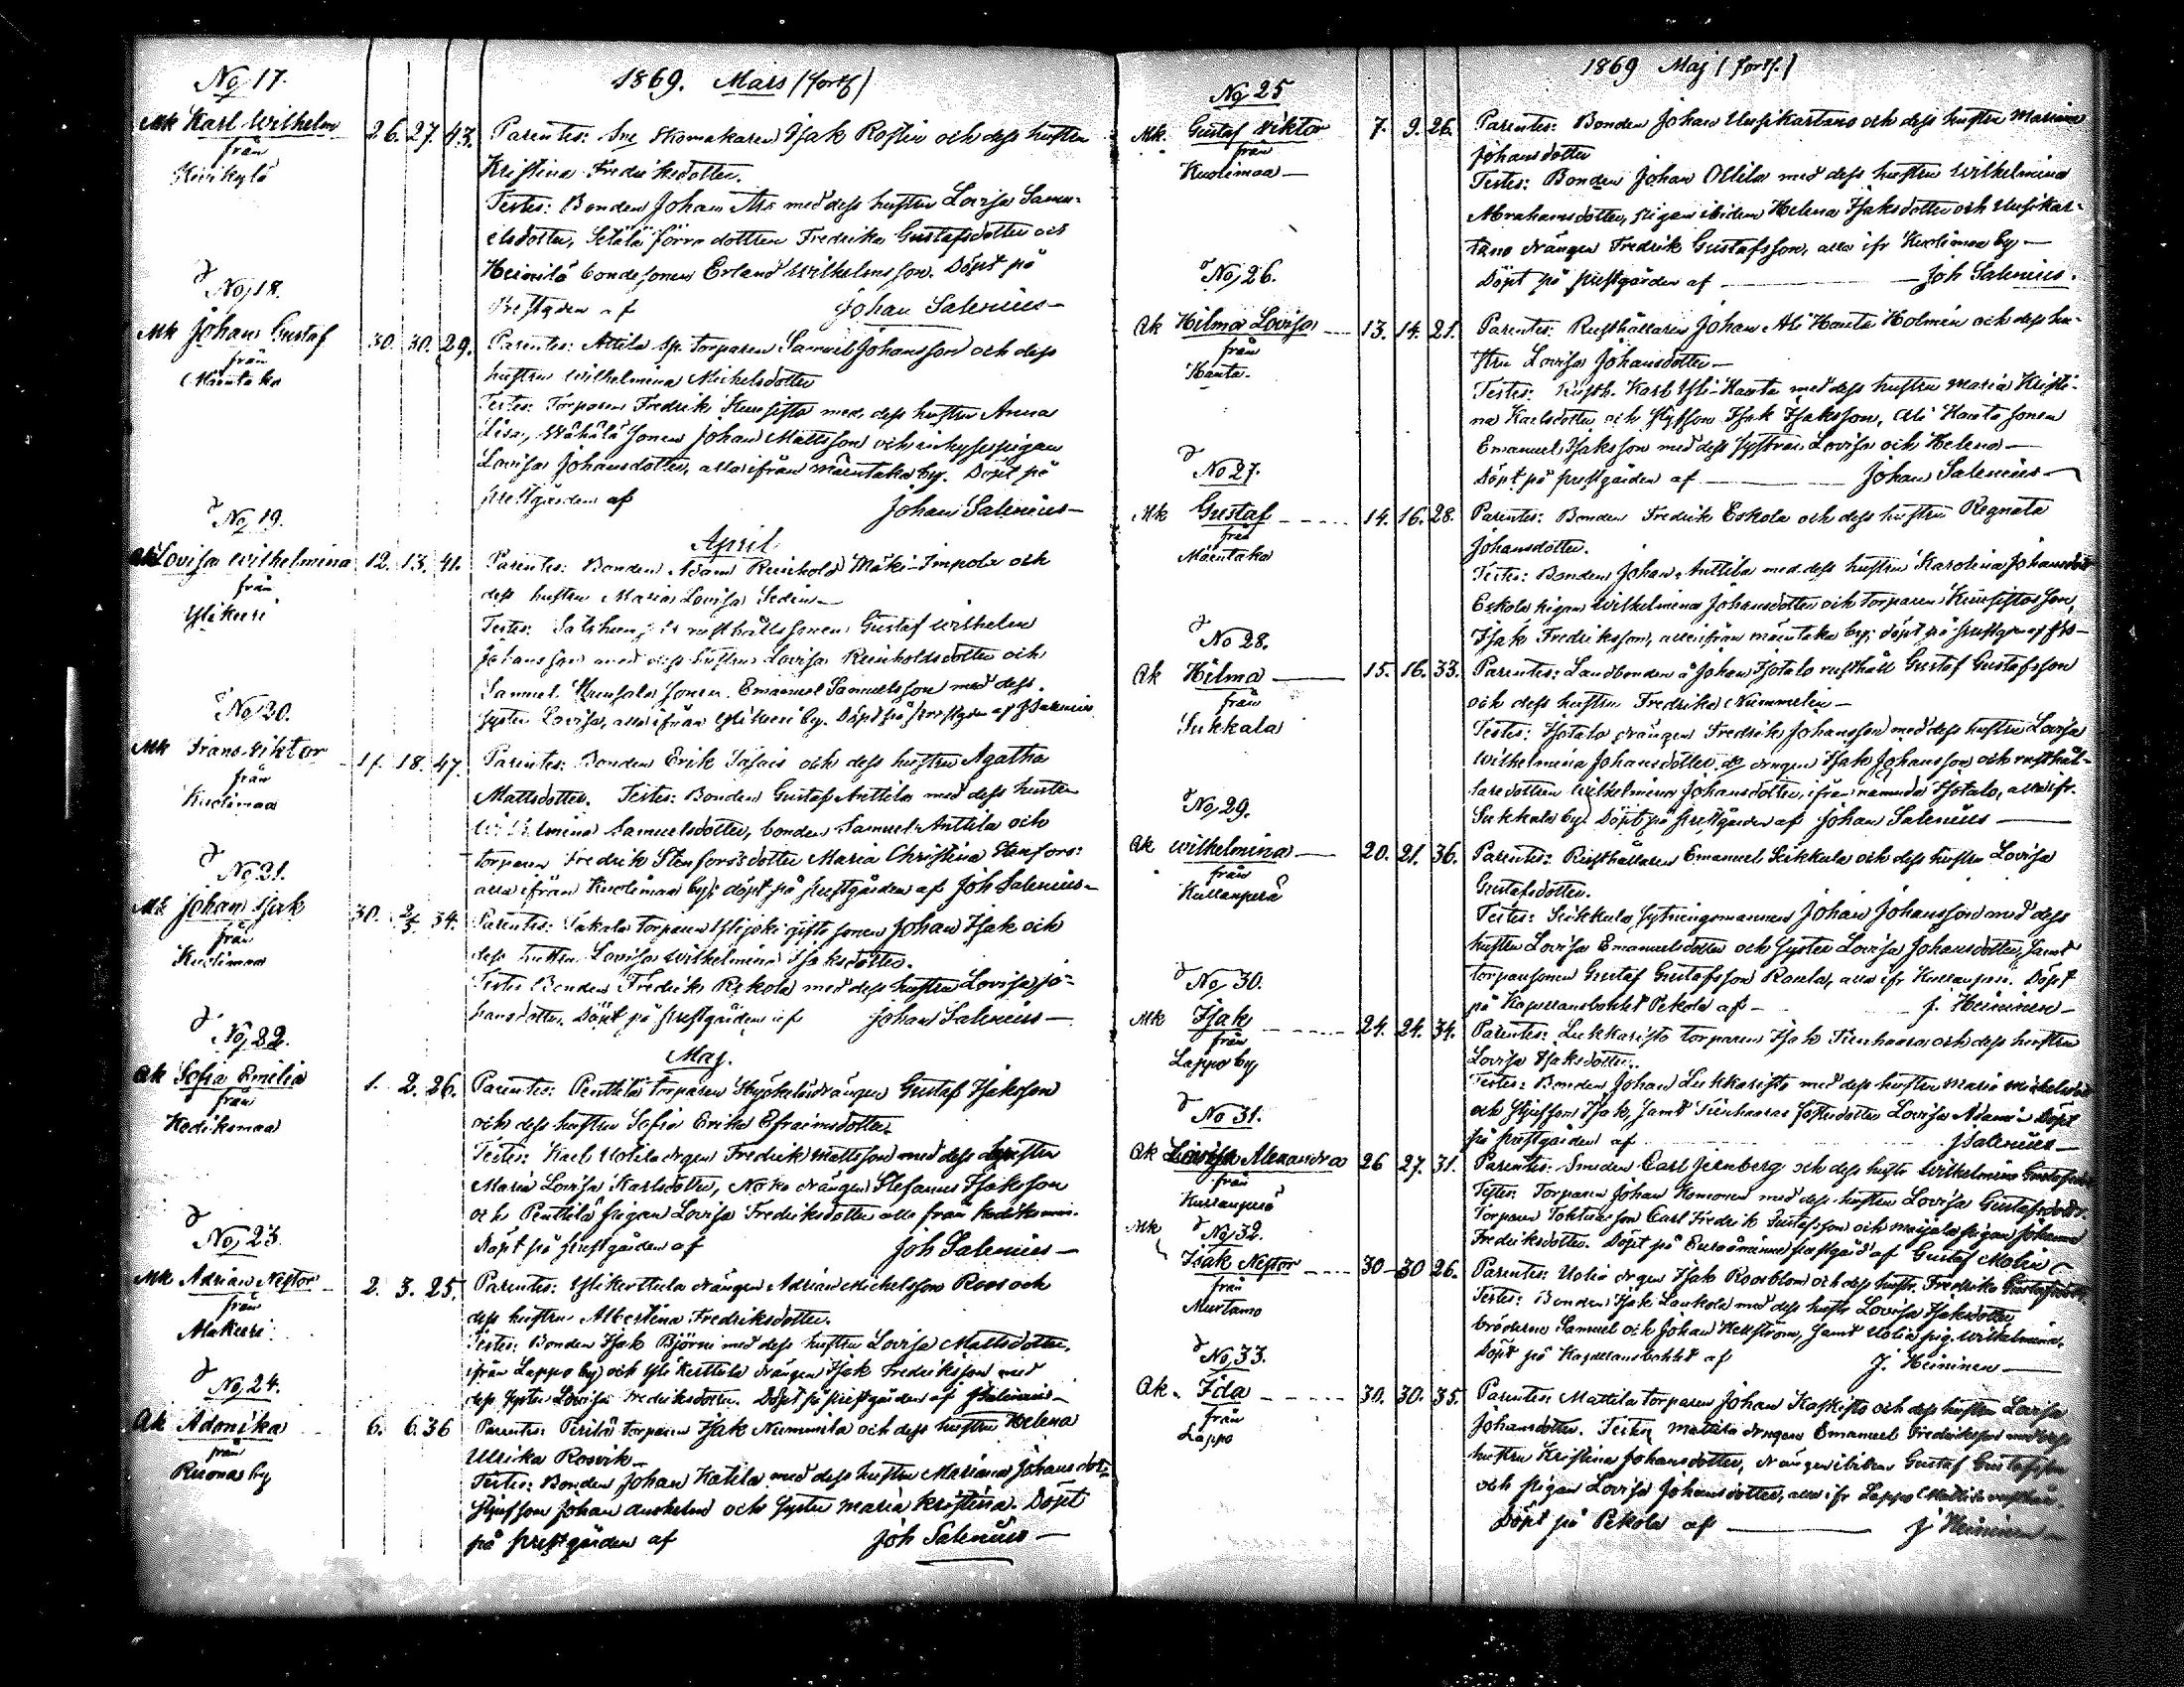 1869. Mars (forts)
No 17.
Mk Karl Wilhelm 26. 27. 43.
från
Kirikylä
Parentes: Skomakaren Isak Roslin och dess hustru
Kristina Fredriksdotter.
Testes: Bonden Johan med dess hustru Lovisa Samu-
elsdotter, Setälä förra dottern Fredrika Gustafsdotter och
Heinilä bondesonen Erland Wilhelmsson. Döpt på
Prestgården af Johan Salenius
No 18.
Mk Johan Gustaf 30. 30. 29.
från
Mäentaka
Parentes: Attila torparen Samuel Johansson och dess
hustru Wilhelmina Michelsdotter
Testes: Torparen Fredrik Kuusisto med dess hustru Anna
Lisa, sonen Johan Mattsson och pigan
Lovisa Johansdotter, alla ifrån Mäentaka by. Döpt på
prestgården af Johan Salenius
April
No 19.
Ak Lovisa Wilhelmina 12. 13. 41.
från
Ylikuri
Parentes: Bonden Adam Reinhold Mäki-Impola och
dess hustru Maria Lovisa Sedin
Testes: rusthållssonen Gustaf Wilhelm
Johansson med dess hustru Lovisa Reinholdsdotter och
Samuel sonen Emanuel Samuelsson med dess
syster Lovisa, alla ifrån Ylikuri by. Döpt på prestgden af J Salenius
No 20.
Mk Frans Viktor 17. 18. 47.
från
Kuolimaa
Parentes: Bonden Erik och dess hustru Agatha
Mattsdotter. Testes: Bonden Gustaf Anttila med dess hustru
Wilhelmina Samuelsdotter, bonden Samuel Anttila och
torparen Fredrik Stenfors dotter Maria Christina Stenfors:
alla ifrån Kuolimaa by; döpt på prestgården af Joh Salenius
No 21.
Mk Johan Isak 30. 2/5. 34.
från
Kuolimaa
Parentes: torparen Ylijoki gifte sonen Johan Isak och
dess hustru Lovisa Wilhelmina Isaksdotter.
Testes Bonden Fredrik Rekola med dess hustru Lovisa Jo-
hansdotter. Döpt på prestgården af Johan Salenius
Maj.
No 22.
Ak Sofia Emelia 1. 2. 26.
från
Kediksmaa
Parentes: Penttilä torparen drängen Gustaf Isaksson
och dess hustru Sofia Erika Efraimsdotter.
Testes: Karl Uotila drgen Fredrik Mattsson med dess hustru
Maria Lovisa Karlsdotter, drängen Stefanus Isaksson
och Penttilä pigan Lovisa Fredriksdotter alla från
Döpt på prestgården af Joh Salenius
No 23.
Mk Adrian Nestor 2. 3. 25.
från
Alakuri
Parentes: Ylikerttula drängen Adrian Michelsson Roos och
dess hustru Albertina Fredriksdotter.
Testes: Bonden Isak Björni med dess hustru Lovisa Mattsdotter,
ifrån Lappo by och Yli Kerttula drängen Isak Fredriksson med
dess syster Lovisa Fredriksdotter. Döpt på prestgården af J Salenius
No 24.
Ak Adamika 6. 6. 36
från
Ruonas by
Parentes: Pirilä torparen Isak Nummila och dess hustru Helena
Ulrika Rosvik
Testes: Bonden Johan Katila med dess hustru Mariana Johansdott-
Styfson Johan och syster Maria Kristina. Döpt
på prestgården af Joh Salenius
1869 Maj (forts.)
No 25
Mk. Gustaf Viktor 7. 9. 26.
från
Kuolimaa
Parentes: Bonden Johan Uusikartano och dess hustru Mariana
Johansdotter
Testes: Bonden Johan Ollila med dess hustru Wilhelmina
Abrahamsdotter, pigan ibidem Helena Isaksdotter och Uusikar-
tano drängen Fredrik Gustafsson, alla ifr Kuolimaa by
Döpt på prestgården af Joh Salenius.
No 26.
Ak Hilma Lovisa 13. 14. 21.
från
Hauta.
Parentes: Rusthållaren Johan Ali Hauta Holmén och dess hu-
stru Lovisa Johansdotter
Testes: Rusth. Karl Yli-Hauta med dess hustru Maria Kristi-
na Karlsdotter och styfson Isak Isaksson, Ali Hauta sonen
Emanuel Isaksson med dess systrar Lovisa och Helena
Döpt på prestgården af Johan Salenius
No 27.
Mk Gustaf 14. 16. 28.
från
Mäentaka
Parentes: Bonden Fredrik Eskola och dess hustru Regnata
Johansdotter.
Testes: Bonden Johan Anttila med dess hustru Karolina Johansdott
Eskola pigan Wilhelmina Johansdotter och torparen Kuusistos son,
Isak Fredriksson, alla ifrån Mäentaka by; döpt på prestgrn af
No 28.
Ak Hilma 15. 16. 33.
från
Sukkala
Parentes: Landbonden å Johan Isotalo rusthåll Gustaf Gustafsson
och dess hustru Fredrika Nummelin
Testes: Isotalo drängen Fredrik Johansson med dess hustru Lovisa
Wilhelmina Johansdotter, drngen Isak Johansson och rusthål-
lare dottren Wilhelmina Johansdotter, ifrån nämnda Isotalo, alla ifr.
Sukkala by. Döpt på prestgården af Johan Salenius
No 29.
Ak Wilhelmina 20. 21. 36.
från
Kullanperä
Parentes: Rusthållaren Emanuel Seikkula och dess hustru Lovisa
Gustafsdotter.
Testes: Seikkula sytningsmannen Johan Johansson med dess
hustru Lovisa Emanuelsdotter och syster Lovisa Johansdotter, samt
torparsonen Gustaf Gustafsson Raula, alla ifr Kullanperä. Döpt
på Kapellansbohlet Pekola af J. Heininen
No 30.
Mk Isak 24. 24. 34.
från
Lappo by
Parentes: Lukkaristo torparen Isak Tienhaara och dess hustru
Lovisa Isaksdotter.
Testes: Bonden Johan Lukkaristo med dess hustru Maria
och styfson Isak, samt Tienhaaras fosterdotter Lovisa Döpt
på prestgården af J Salenius
No 31.
Ak Lovisa Alexandra 26 27. 31.
från
Kullanperä
Parentes: Smeden Carl Jernberg och dess hustr Wilhelmina
Testes: Torparen Johan Komonen med dess hustru Lovisa Gustafsdottr.
Torparen son Carl Fredrik Gustafsson och pigan Johanna
Fredriksdotter. Döpt på Euraåminne prestgård af Gustaf Molin
Mk No 32.
Isak Nestor 30 30 26.
från
Murtamo
Parentes: Uotila drgen Isak Roosblom och dess hustr. Fredrika
Testes: Bonden Isak Laukola med dess hustr Lovisa Isaksdotter,
bröderne Samuel och Johan Hellström, samt Uotila pig. Wilhelmina.
Döpt på Kapellansbohlet af J. Heininen
No 33.
Ak. Ida 30. 30. 35.
från
Lappo
Parentes: Mattila torparen Johan Kaskisto och dess hustru Lovisa
Johansdotter. Testes Mattila drngen Emanuel Fredriksson med dess
hustru Kristina Johansdotter, drängen ibidem Gustaf Gustafsson
och pigan Lovisa Johansdotter, alla ifr Lappo
Döpt på Pekola af J Heininen